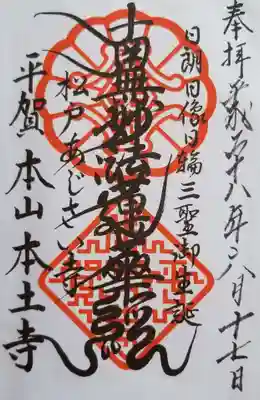 奉拝 令和六年八月十七日
日朗日像日輪三聖御生誕
南無妙法蓮華経
松戸あじさい寺
平賀 本山本土寺